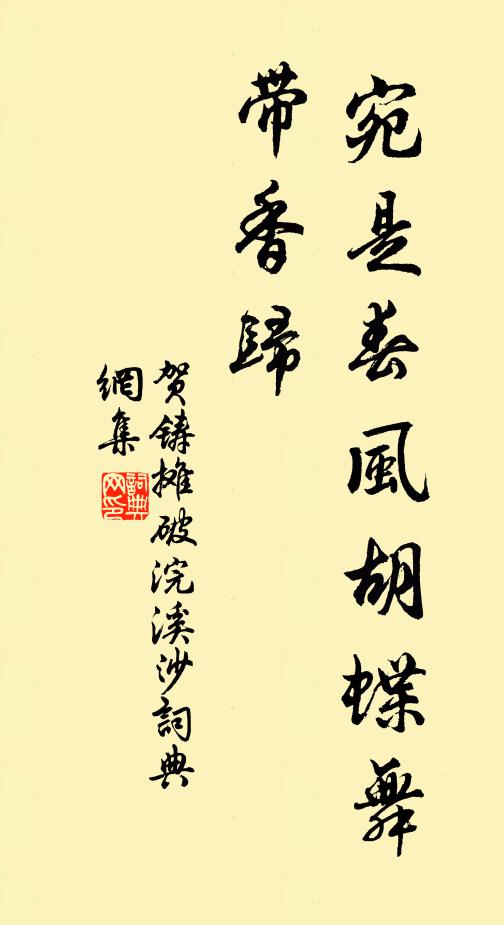 宛是春風胡蝶舞
带香歸
贺鑄摊破浣溪沙詞典
網集
詞典
网印